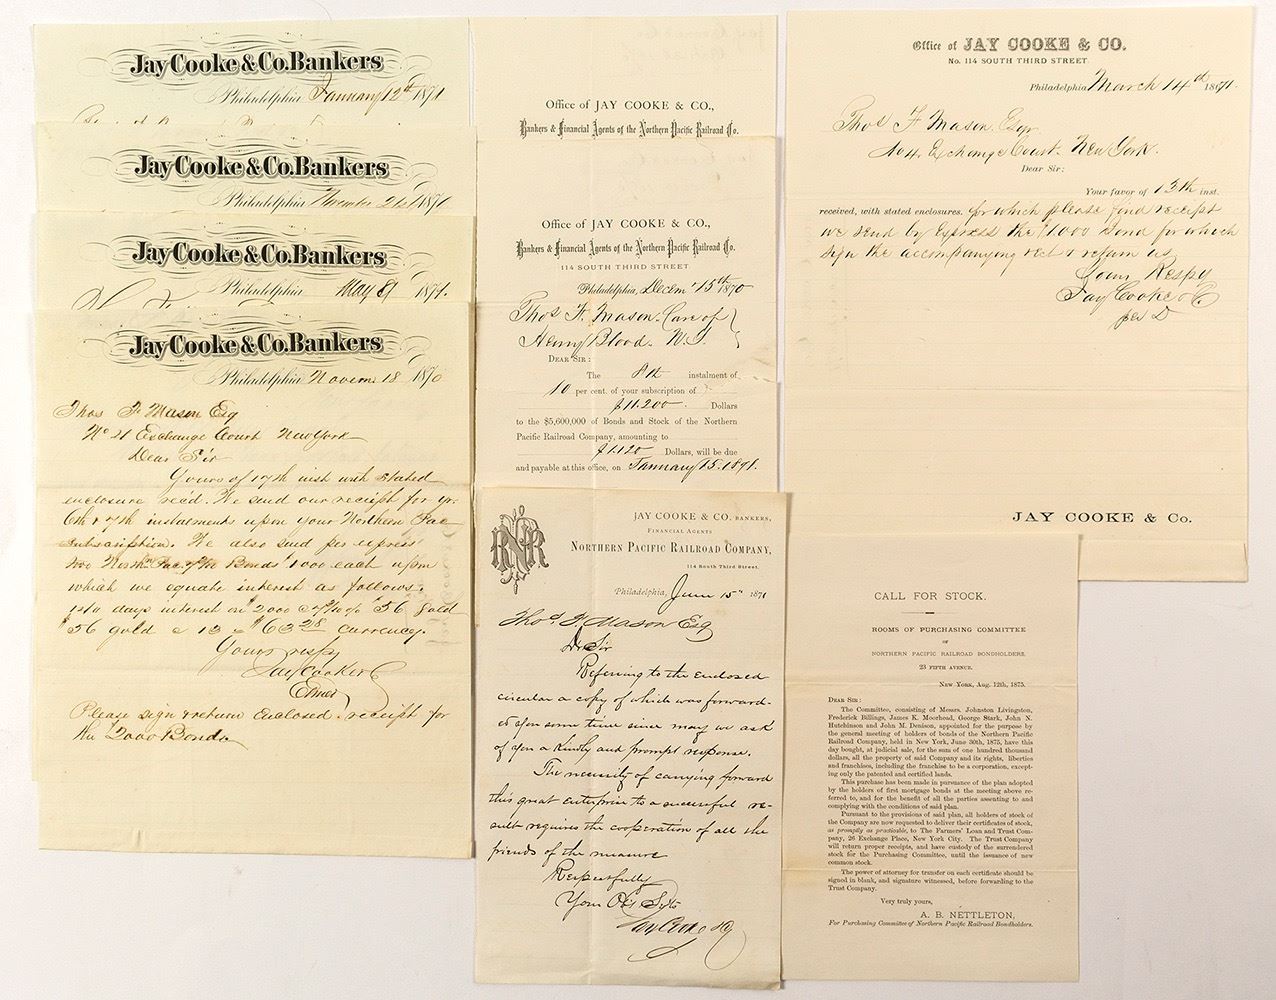 Jay Cooke & Co. Bankers
Philadelphia January 12th 1871
Jay Cooke & Co. Bankers
Philadelphia November 21st 1871
Jay Cooke & Co. Bankers
Philadelphia May 8 1871.
Jay Cooke & Co. Bankers
Philadelphia Novem. 18 1870
Thos F. Mason Esq
No 4 Exchange Court New York
Dear Sir
Yours of 17th inst with stated
enclosure rec'd. We send our receipt for yr.
6th & 7th instalments upon your Northern Pac
subscription. We also send per express
two North Pac 7/10 Bonds 1000 each upon
which we equate interest as follows.
days interest on 2000 @ 7/10 % $56 gold
$56 gold @ 13 = $63 28 currency.
Yours respy
Jay Cooke & Co
Please sign & return enclosed receipt for
the 2000 Bonds
Office of JAY COOKE & CO.,
Bankers & Financial Agents of the Northern Pacific Railroad Co.
Office of JAY COOKE & CO.,
Bankers & Financial Agents of the Northern Pacific Railroad Co.
114 SOUTH THIRD STREET
Philadelphia, Decem' 15th 1870
Thos F. Mason. Care of
Henry Blood. N.Y.
DEAR SIR:
The 8th instalment of
10 per cent. of your subscription of
$11.200. Dollars
to the $5,600,000 of Bonds and Stock of the Northern
Pacific Railroad Company, amounting to
$1.120 Dollars, will be due
and payable at this office, on January 15. 1871.
NPRR
JAY COOKE & CO. BANKERS,
FINANCIAL AGENTS
NORTHERN PACIFIC RAILROAD COMPANY,
114 South Third Street.
Philadelphia, June 15th 1871
Thos. F. Mason Esq
Dr Sir
Referring to the enclosed
circular a copy of which was forward-
ed you some time since may we ask
of you a kindly and prompt response.
The necessity of carrying forward
this great enterprise to a successful re-
sult requires the cooperation of all the
friends of the measure
Respectfully
Your Ob't Svts
Jay Cooke & Co
Office of JAY COOKE & CO.
No. 114 SOUTH THIRD STREET
Philadelphia March 14th 1871.
Thos F Mason Esqr
No 4. Exchange Court. New York.
Dear Sir:
Your favor of 13th inst.
received, with stated enclosures. for which please find receipt
we send by Express the $1000 Bond for which
sign the accompanying rect & return us
Yours Respy
Jay Cooke & Co
per D
JAY COOKE & Co.
CALL FOR STOCK.
ROOMS OF PURCHASING COMMITTEE
OF
NORTHERN PACIFIC RAILROAD BONDHOLDERS,
23 FIFTH AVENUE.
NEW YORK, Aug. 12th, 1875.
DEAR SIR:
The Committee, consisting of Messrs. Johnston Livingston,
Frederick Billings, James K. Moorhead, George Stark, John N.
Hutchinson and John M. Denison, appointed for the purpose by
the general meeting of holders of bonds of the Northern Pacific
Railroad Company, held in New York, June 30th, 1875, have this
day bought, at judicial sale, for the sum of one hundred thousand
dollars, all the property of said Company and its rights, liberties
and franchises, including the franchise to be a corporation, except-
ing only the patented and certified lands.
This purchase has been made in pursuance of the plan adopted
by the holders of first mortgage bonds at the meeting above re-
ferred to, and for the benefit of all the parties assenting to and
complying with the conditions of said plan.
Pursuant to the provisions of said plan, all holders of stock of
the Company are now requested to deliver their certificates of stock,
as promptly as practicable, to The Farmers' Loan and Trust Com-
pany, 26 Exchange Place, New York City. The Trust Company
will return proper receipts, and have custody of the surrendered
stock for the Purchasing Committee, until the issuance of new
common stock.
The power of attorney for transfer on each certificate should be
signed in blank, and signature witnessed, before forwarding to the
Trust Company.
Very truly yours,
A. B. NETTLETON,
For Purchasing Committee of Northern Pacific Railroad Bondholders.